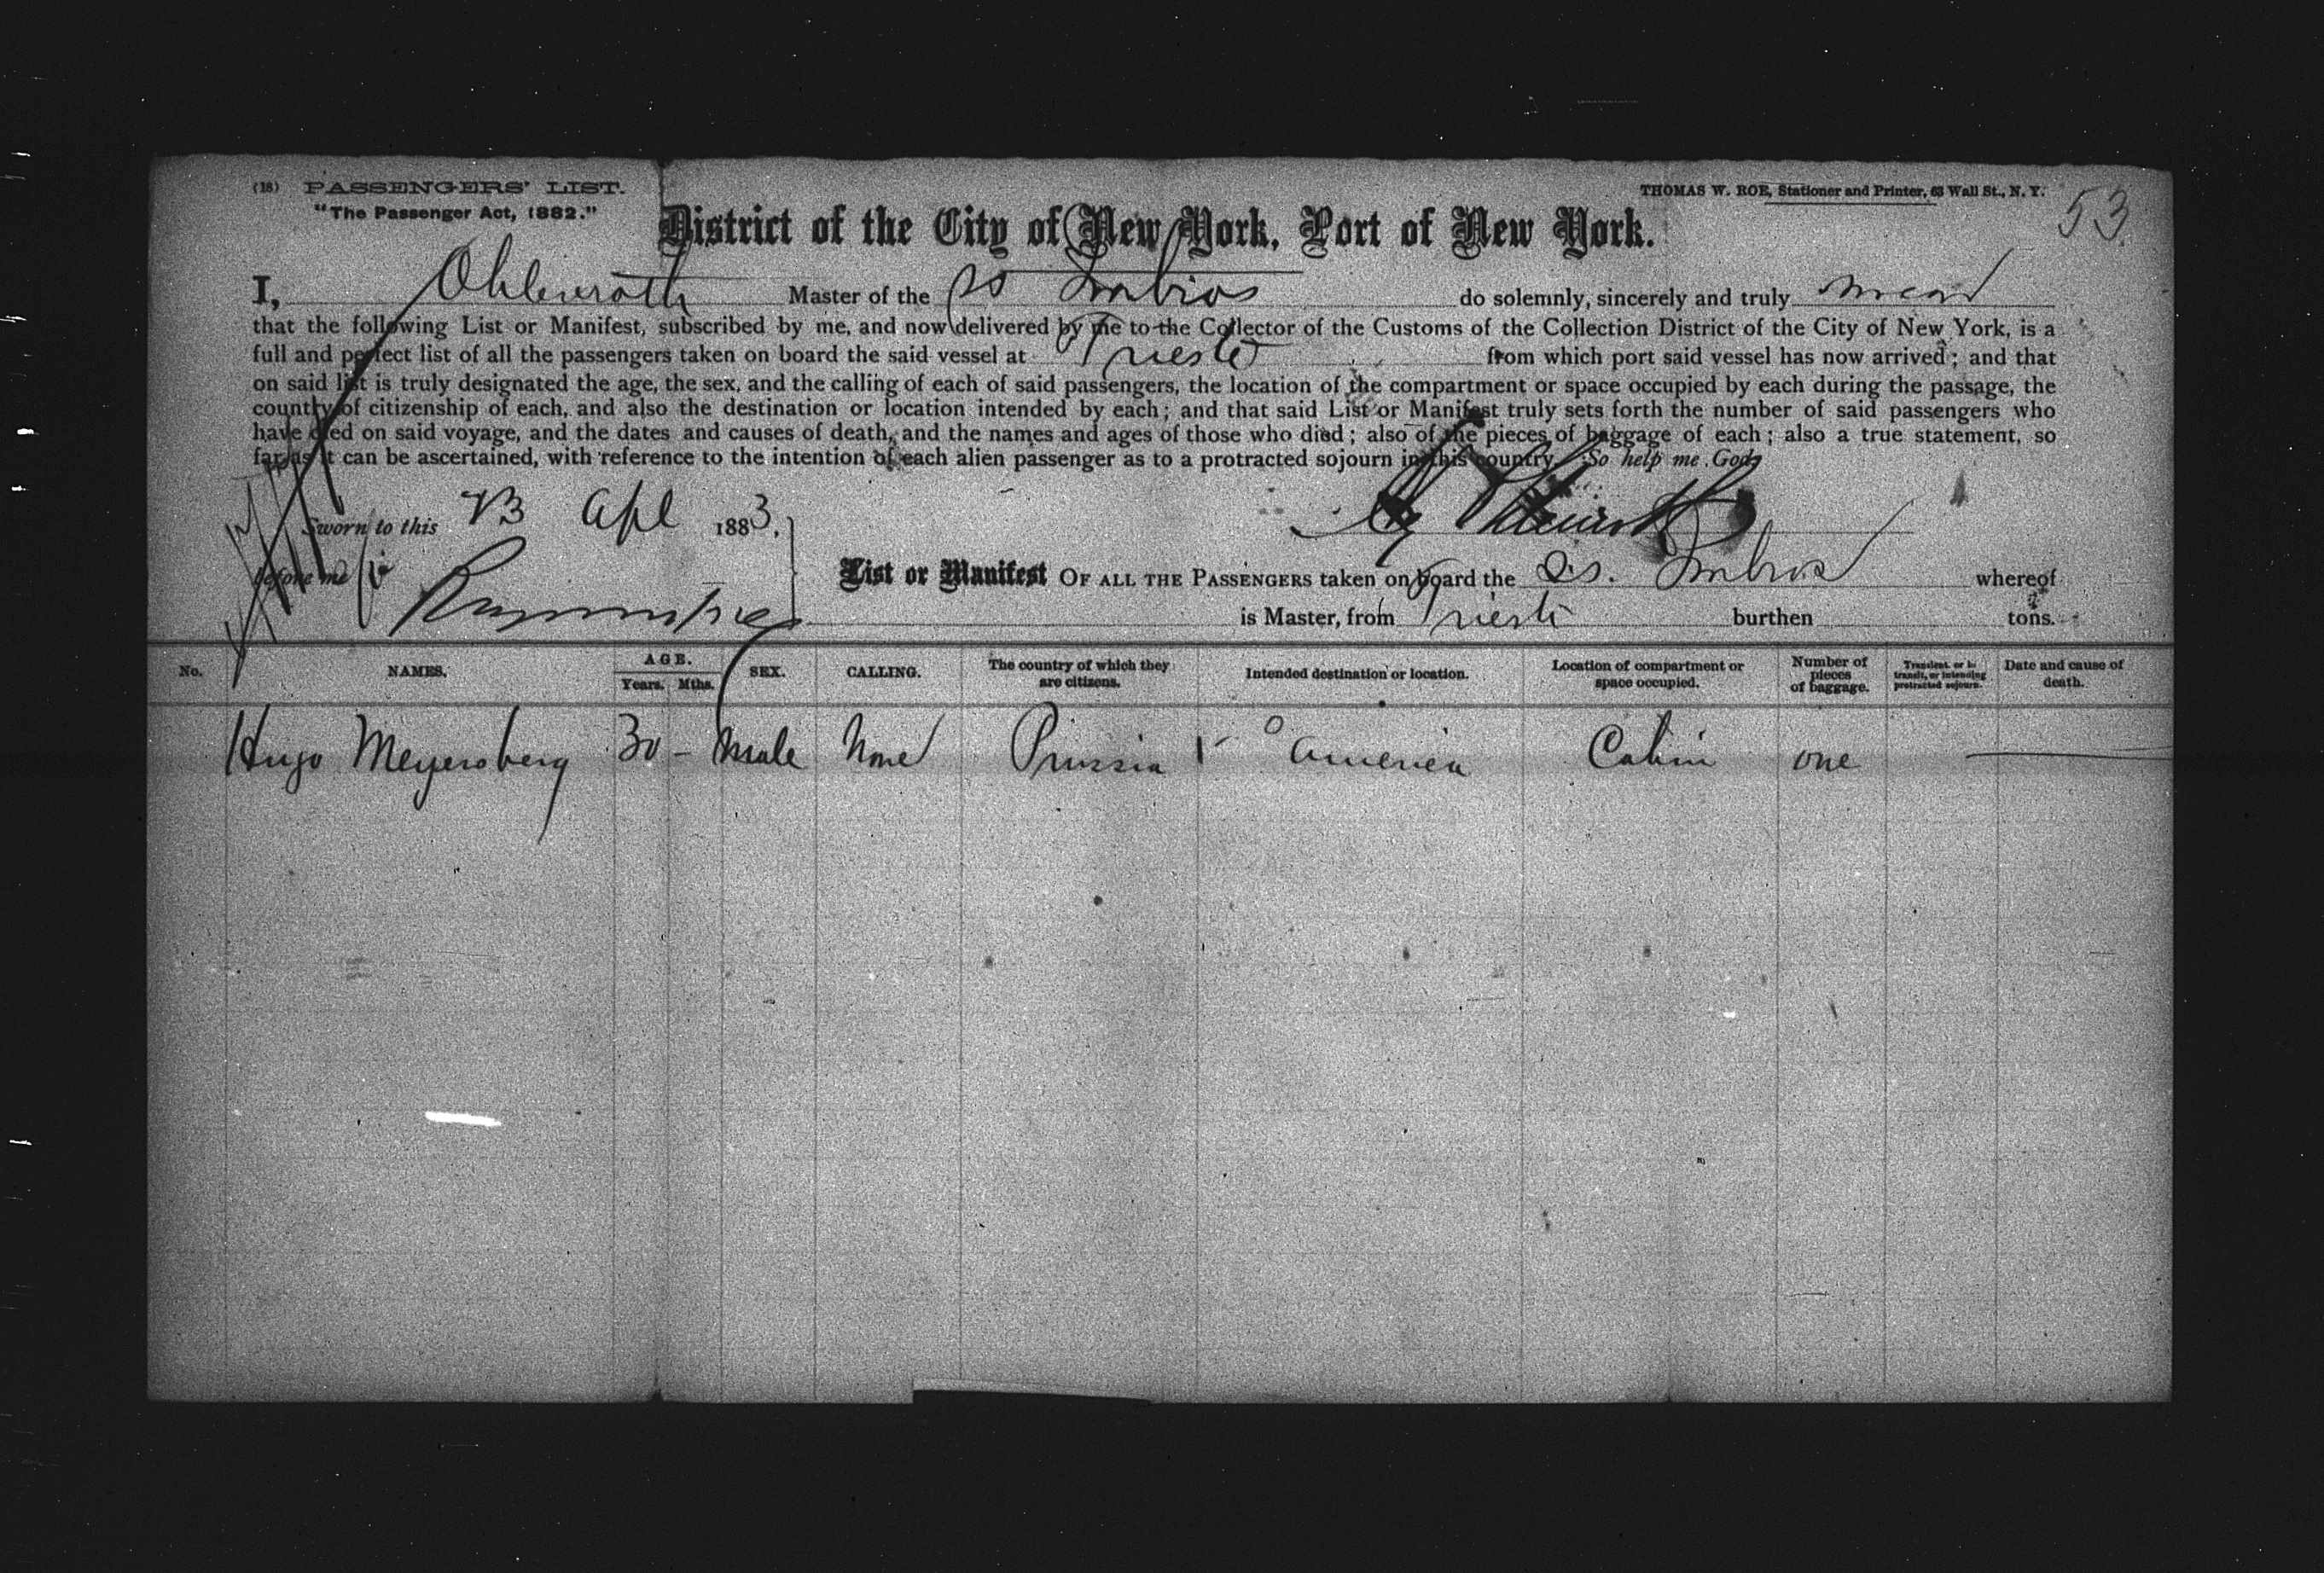 (18) PASSENGERS' LIST.
"The Passenger Act, 1882."
THOMAS W. ROE, Stationer and Printer, 63 Wall St., N. Y.
53
District of the City of New York, Port of New York.
I, Ohlenroth Master of the SS Imbros do solemnly, sincerely and truly swear
that the following List or Manifest, subscribed by me, and now delivered by me to the Collector of the Customs of the Collection District of the City of New York, is a
full and perfect list of all the passengers taken on board the said vessel at Trieste from which port said vessel has now arrived; and that
on said list is truly designated the age, the sex, and the calling of each of said passengers, the location of the compartment or space occupied by each during the passage, the
country of citizenship of each, and also the destination or location intended by each; and that said List or Manifest truly sets forth the number of said passengers who
have died on said voyage, and the dates and causes of death, and the names and ages of those who died; also of the pieces of baggage of each; also a true statement, so
far as it can be ascertained, with reference to the intention of each alien passenger as to a protracted sojourn in this country. So help me God.
Sworn to this 23 Apl 1883,
before me
List or Manifest OF ALL THE PASSENGERS taken on board the S.S. Imbros whereof
is Master, from Trieste burthen tons.
No. NAMES. AGE. Years. Mths. SEX. CALLING. The country of which they are citizens. Intended destination or location. Location of compartment or space occupied. Number of pieces of baggage. Transient, or in transit, or intending protracted sojourn. Date and cause of death.
Hugo Meyersberg 30 - Male None Prussia America Cabin one